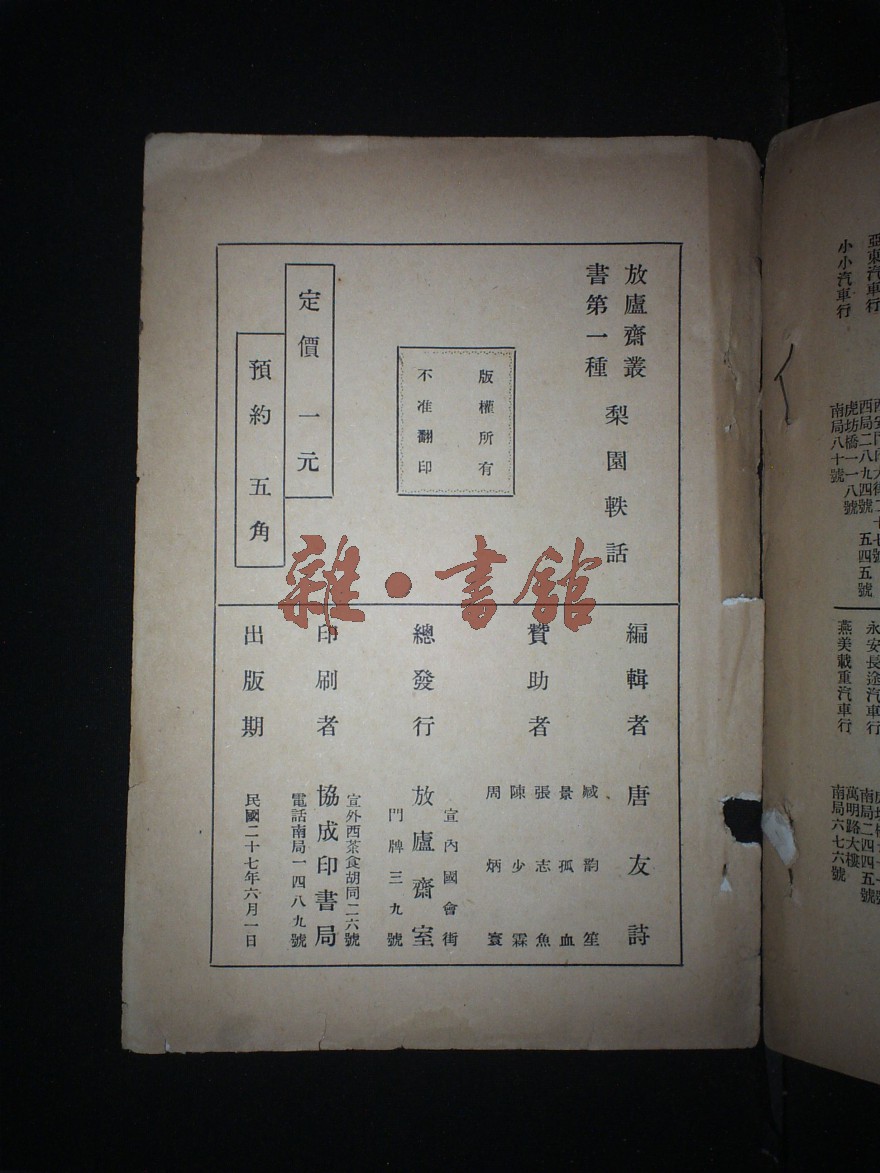 放廬齋叢
書第一種
梨園軼話
版權所有
不准翻印
定價 一元
預約 五角
編輯者 唐友詩
贊助者
臧韵笙
景孤血
張志魚
陳少霖
周炳寰
總發行
宣內國會街
放廬齋室
門牌三九號
印刷者
宣外西茶食胡同二六號
協成印書局
電話南局一四八九號
出版期 民國二十七年六月一日
雜·書館
亞東汽車行
小小汽車行
虎坊橋一一八號
南局八十號
永安長途汽車行
燕美載重汽車行
萬明路大樓
南局六七六號